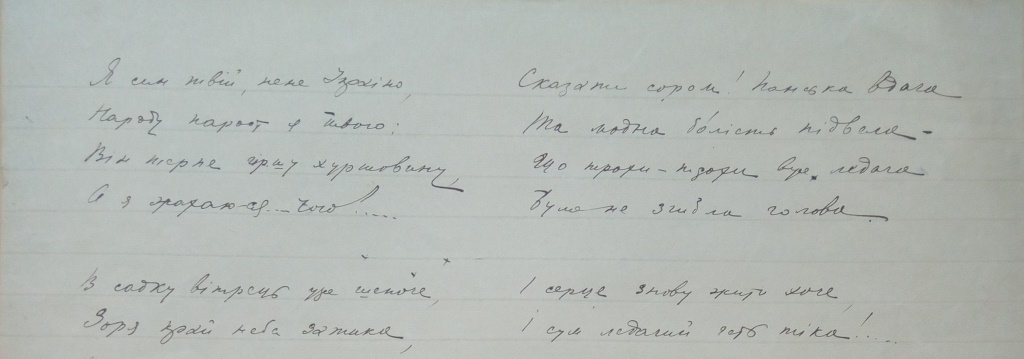 Я син твій, нене Україно,
Народу парост я твого:
Він терпе гіршу хуртовину,
А я жахаюся... Чого!.....
В садку вітрець уже шепоче,
Зоря край неба затика,
Сказати сором! Панська вдача
Та модна болість підвела –
Що трохи-трохи вже ледача
Було не згибла голова.
І серце знову жити хоче,
І сум ледачий геть тіка!.....